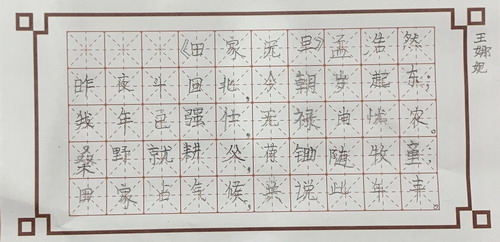 《田家》孟浩然
昨夜斗回北,今朝岁起东;
我年已强仕,无禄尚忧农。
桑野就耕父,荷锄随牧童;
田家占气候,共说此年丰。
王娜妮